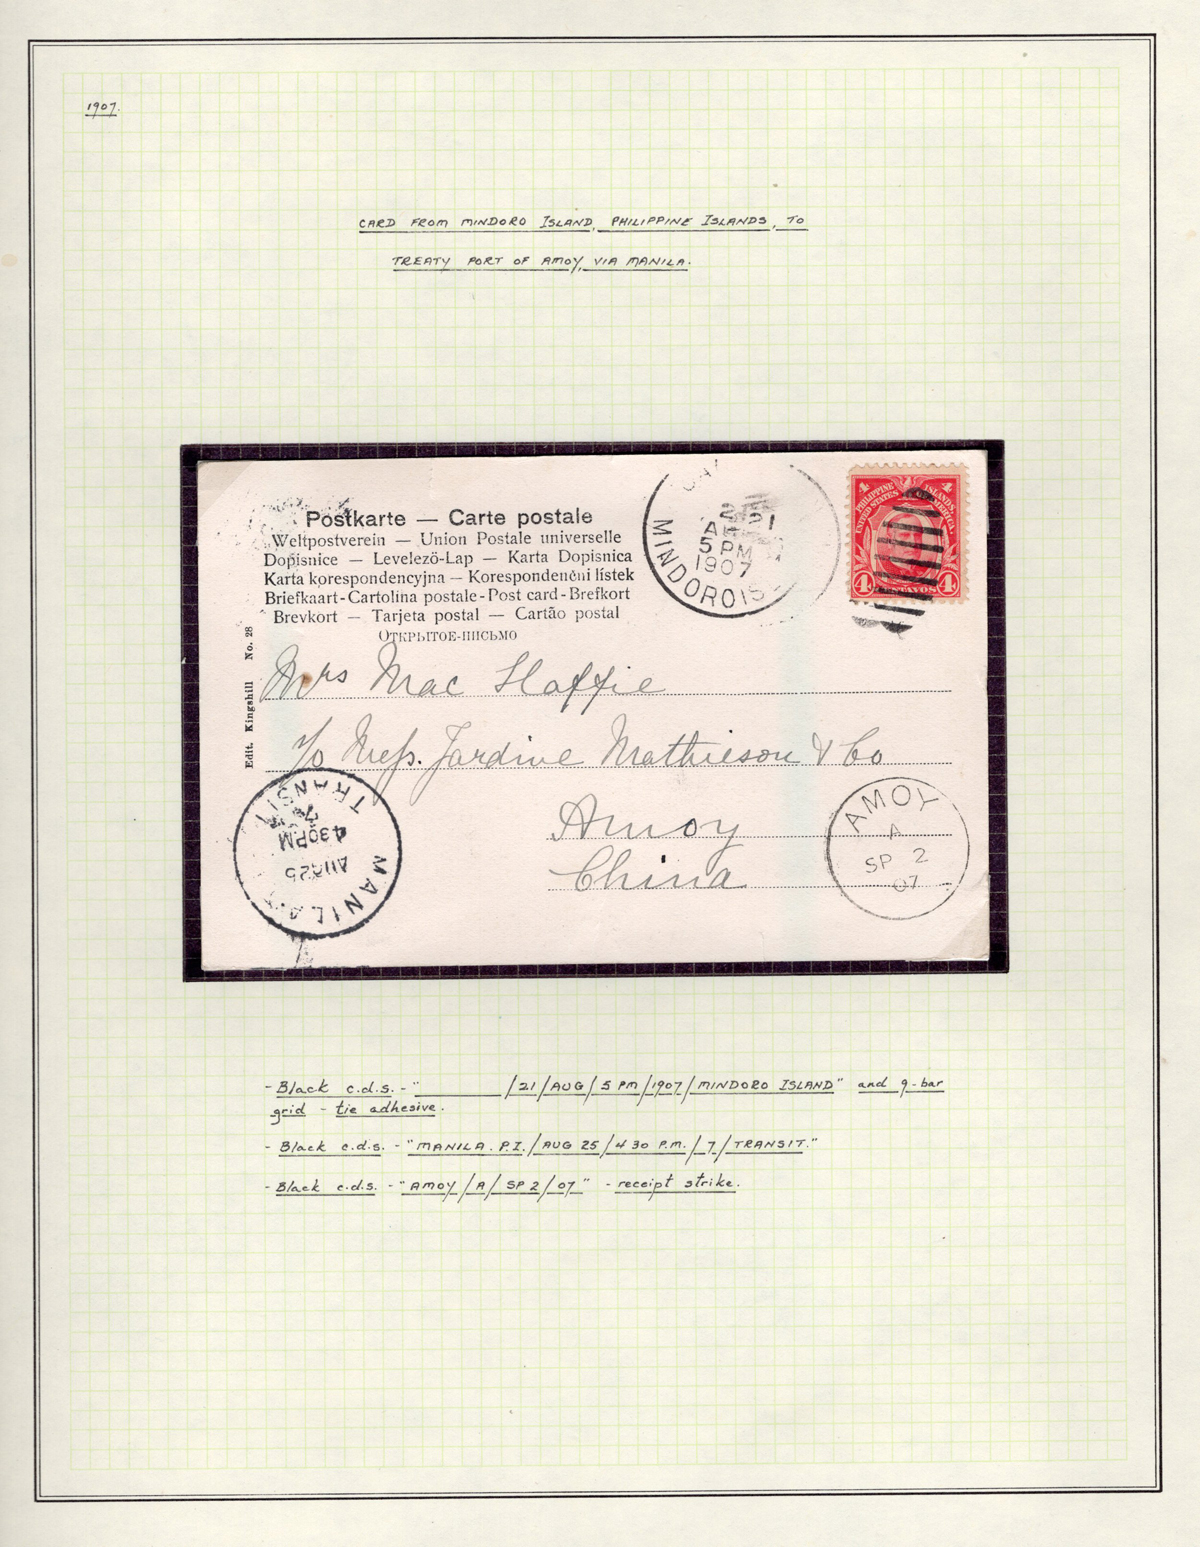 1907.
CARD FROM MINDORO ISLAND, PHILIPPINE ISLANDS, TO
TREATY PORT OF AMOY, VIA MANILA.
Postkarte — Carte postale
Weltpostverein — Union Postale universelle
Dopisnice — Levelező-Lap — Karta Dopisnica
Karta korespondencyjna — Korespondenční lístek
Briefkaart-Cartolina postale-Post card-Brefkort
Brevkort — Tarjeta postal — Cartão postal
Открытое-письмо
Edit. Kingshill No. 28
21
5 PM
1907
MINDORO IS
4 4
PHILIPPINE ISLANDS
UNITED STATES AMERICA
4 CENTAVOS 4
Mrs Mac Haffie
c/o Mess. Jardine Mathieson & Co
Amoy
China
MANILA
AUG 25
4 30 PM
7
TRANSIT
AMOY
A
SP 2
07
- Black c.d.s. - " /21/AUG/5 PM/1907/MINDORO ISLAND" and 9-bar
grid - tie adhesive.
- Black c.d.s. - "MANILA. P.I./AUG 25/4 30 P.M./7/TRANSIT."
- Black c.d.s. - "AMOY/A/SP 2/07" - receipt strike.